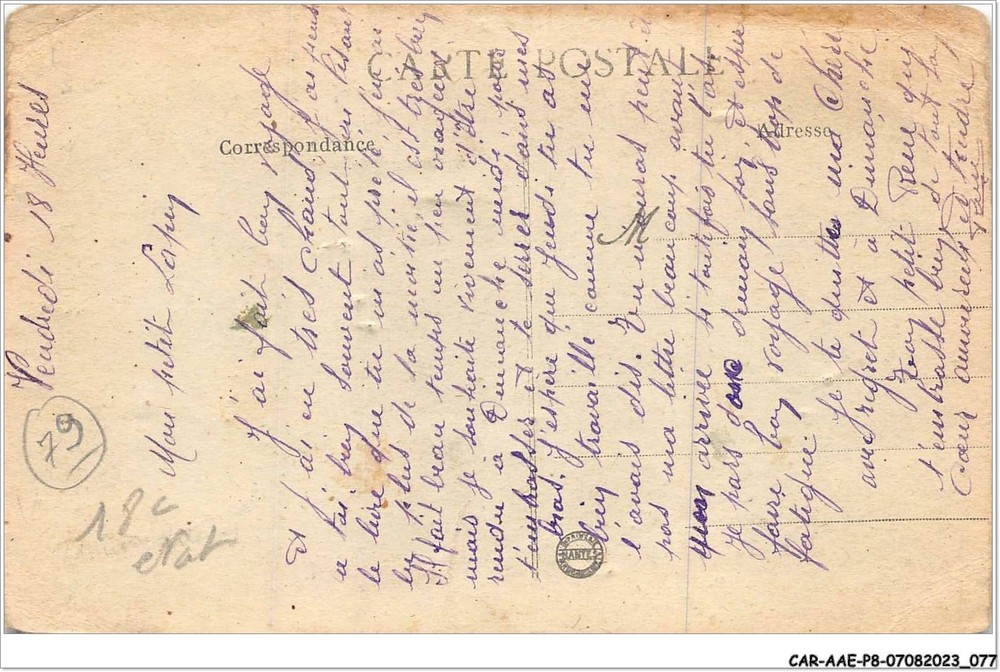 CARTE POSTALE
Correspondance
Adresse
M
Vendredi 18 Heures
Mon petit Lapin
J'ai fait bon voyage
et j'ai eu très chaud, j'ai pensé
à toi bien souvent tout en lisant
le livre que tu m'as prêté j'en ai
lu plus de la moitié, il est très bien
Il fait beau temps un peu orageux
mais je souhaite vivement d'être
rendu à Dimanche midi pour
t'embrasser et te serrer dans mes
bras. J'espère que Jeudi tu as
bien travaillé comme tu me
l'avais dis. Tu n'auras peut être
pas ma lettre beaucoup avant
mon arrivée si toutefois tu l'as
Je pars donc demain soir, et espère
faire bon voyage sans trop de
fatigue.
Je te quitte ma Chérie
avec regret et à Dimanche
Ton petit René qui
t'embrasse bien de tout son
Cœur amoureux et tendre!
René
79
18e
etat
IMPRIMERIES
NANTES
CAR-AAE-P8-07082023_077